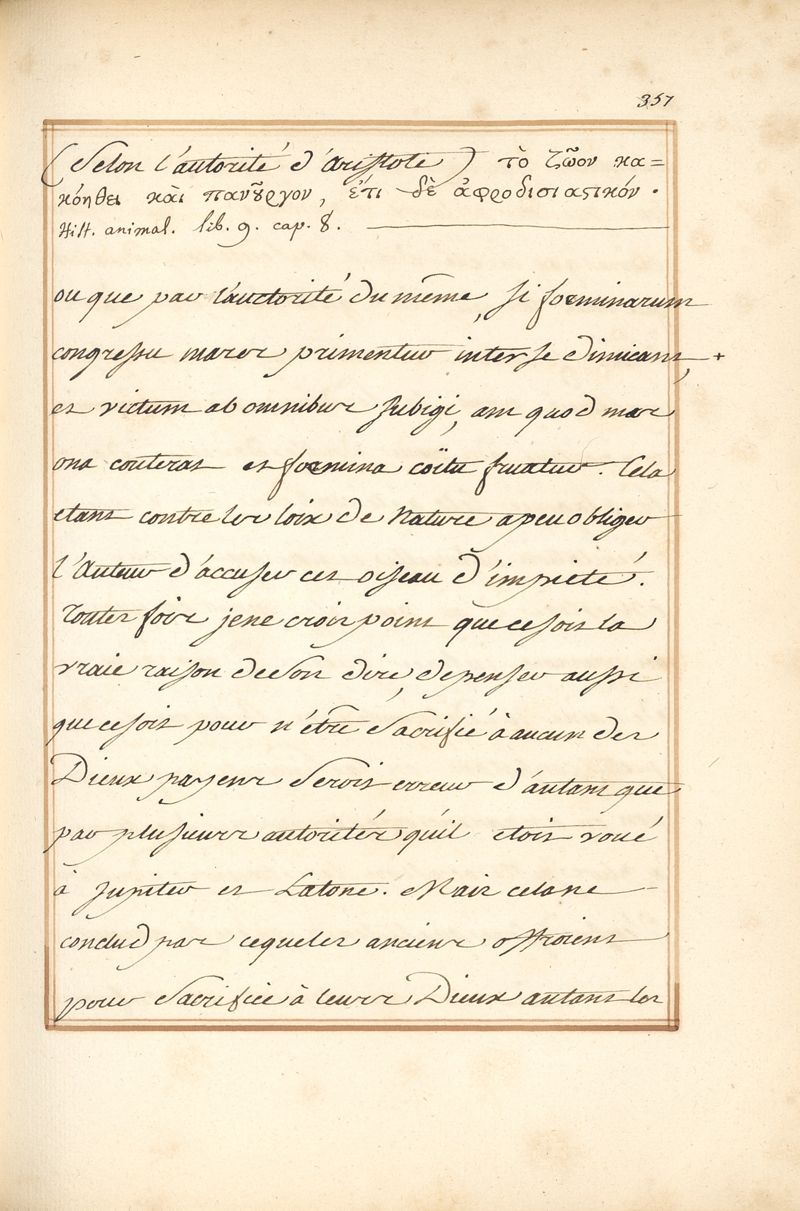 357
(Selon l'autorité d'Aristote) τὸ ζῶον κα=
κόηθει κὰι πανȣ͂ργον, ἔτι δὲ ἀφροδισιαςικόν.
Hist. animal. lib. 9. cap. 8.
ou que par l'auctorité du même, si foeminarum
congressu mares primentur inter se dimicant, +
et victum ab omnibus subigi, am quod mas
ona conterat et foemina coïtu fruatur. Cela
etant contre les loix de Nature a peu obliger
l'Auteur d'accuser cet oiseau d'impiété.
Toutes fois je ne crois point que ce soit la
vraie raison de son dire, de penser aussi
que ce soit pour n'être Sacrifié à aucun des
Dieux payens Seroit erreur d'autant que
par plusieurs autorités qu'il etoit voué
à Jupiter et Latone. Mais cela ne
conclud pas ce que les anciens offroient
pour Sacrifice à leurs Dieux autant les